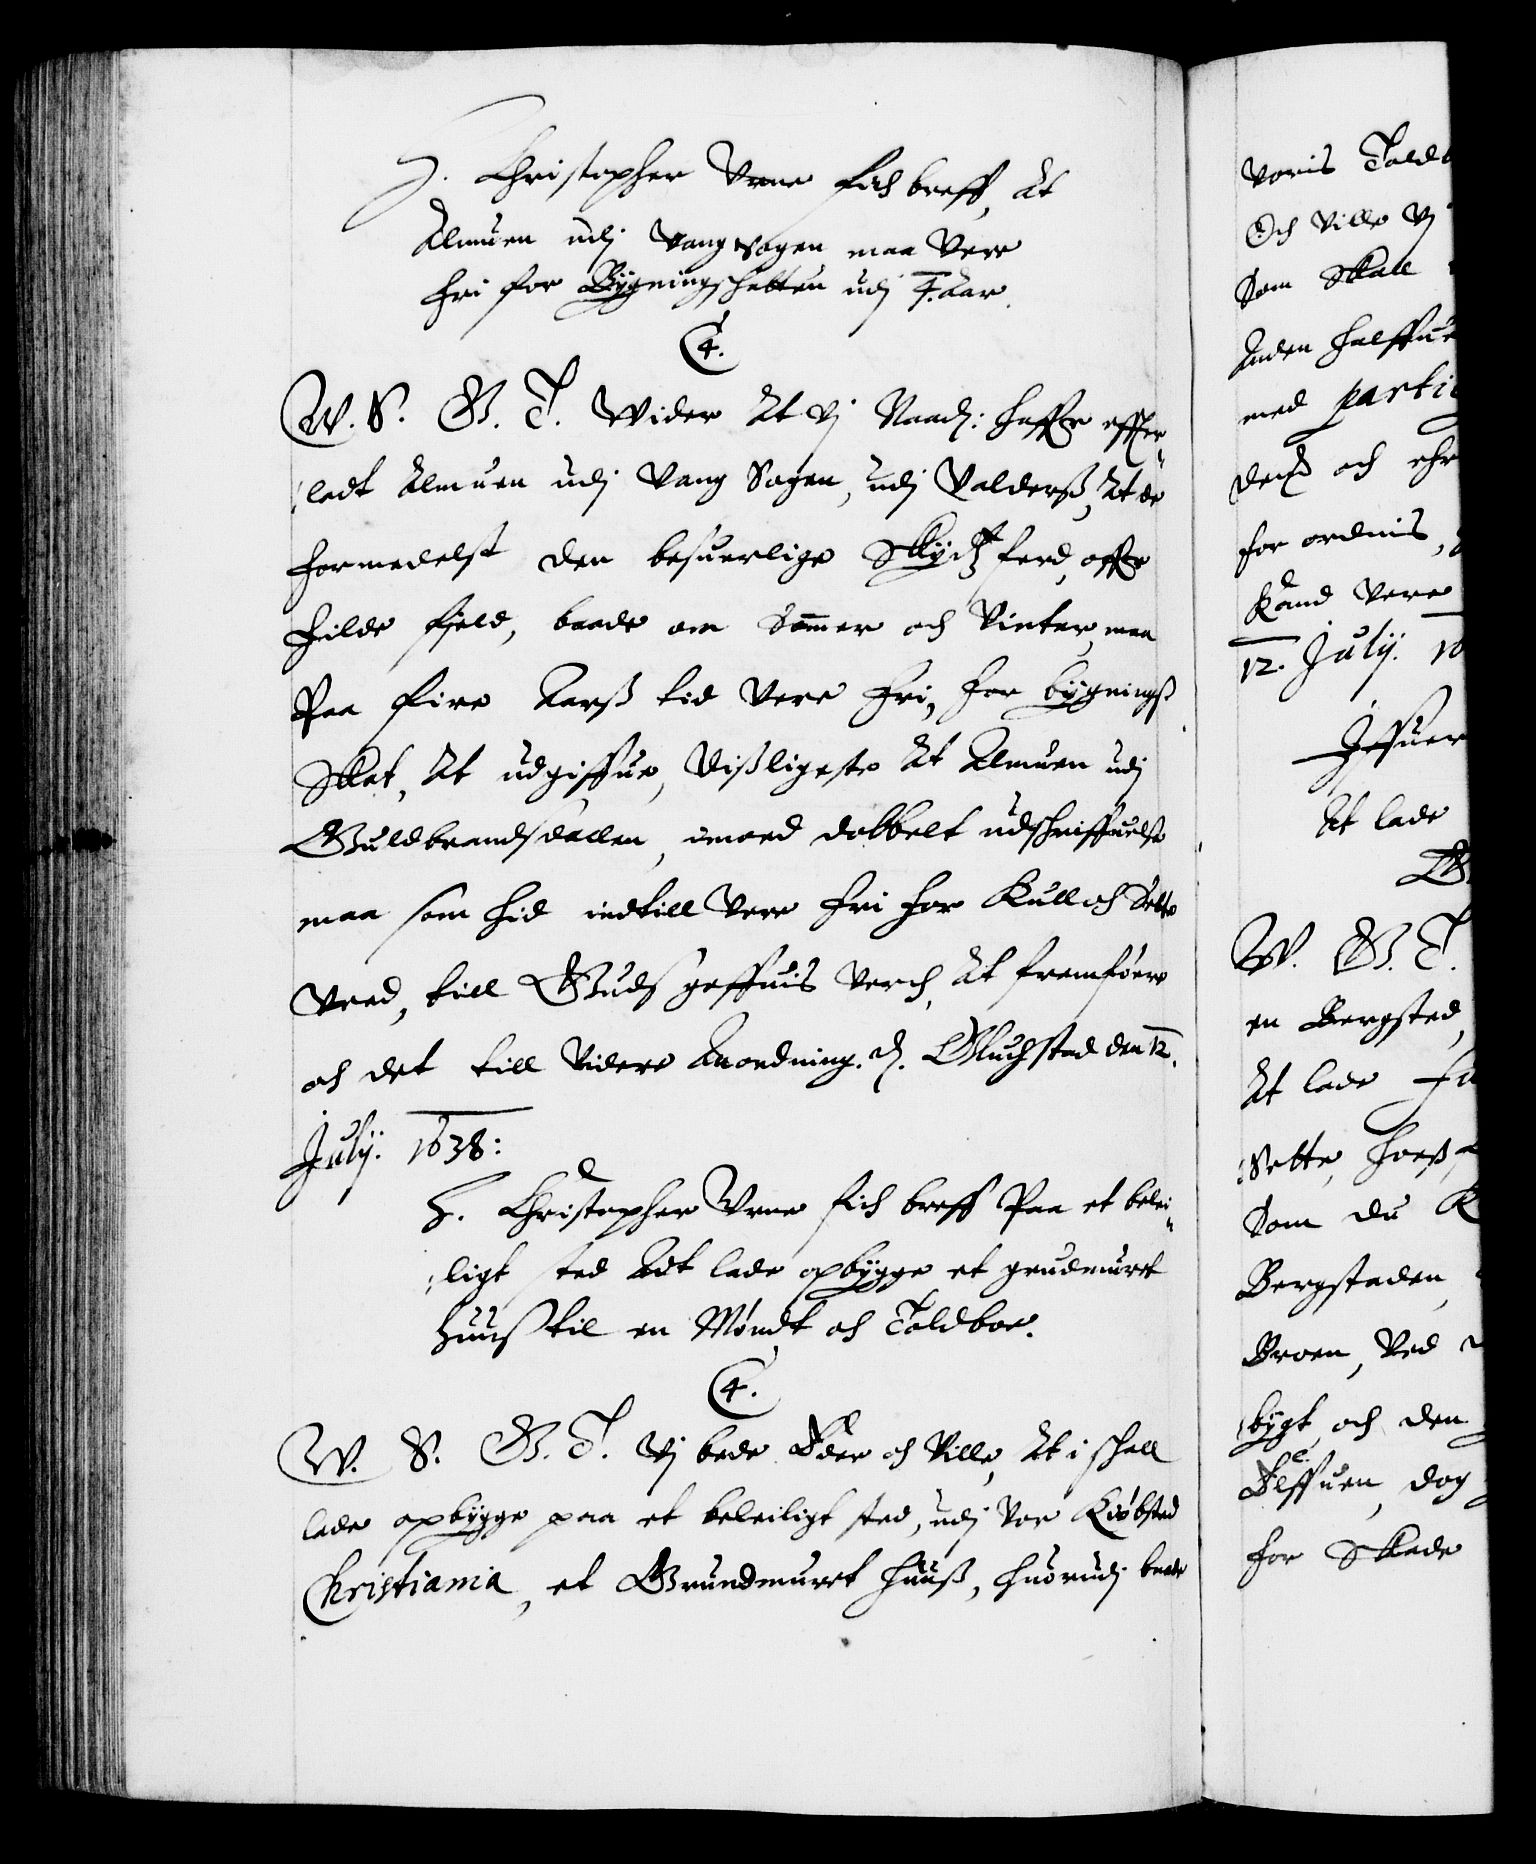 H. Christopher Vrne fich breff, At
Almuen udj Vang Sogen maa Vere
fri for Bygningschatten udj 4. Aar.
C 4.
W. S. G. T. Wider At Vj Naad: haffr effter
ladt Almuen udj Vang Sogen, udj Valderß, At de
formedelst den besuerlige Skydtzferd, offr
File field, baade om Sommer och Vinter, maa
Paa fire Aarß tid Vere fri, for bygningß
Skat, At udgiffue, Dißligeste At Almuen udj
Guldbrandsdallen, imod dobbelt udschriffuelse
maa som hid indtill Vere fri for Kull och Sette
Ved, till Guds geffuis Verch, At fremføere
och det till Videre Anordning. d. Gluchstad den 12.
July. 1638:
H. Christopher Vrne fich breff Paa et belei
ligt sted Att lade opbygge et grundmuret
Huuß til en Møndt och Toldboe.
C 4.
W. S. G. T. Vj bede Eder och Ville, At i schall
lade opbygge paa et beleiligt sted, udj Vor Kiøbsted
Christiania, et Grundmurt Huuß, huorudj baade
Voris Told
Och Ville Vj
Som Skall
Anden halffue
med parti
och ehr
for ordnis,
Kand Vere
12. July. 16
Iffuer
At lade
W. G. T.
en Bergsted,
At lade
Sette, hoeß
Som du K
Bergstaden,
Broen, Ved
bygt, och den
Elffuen, dog
for Skade